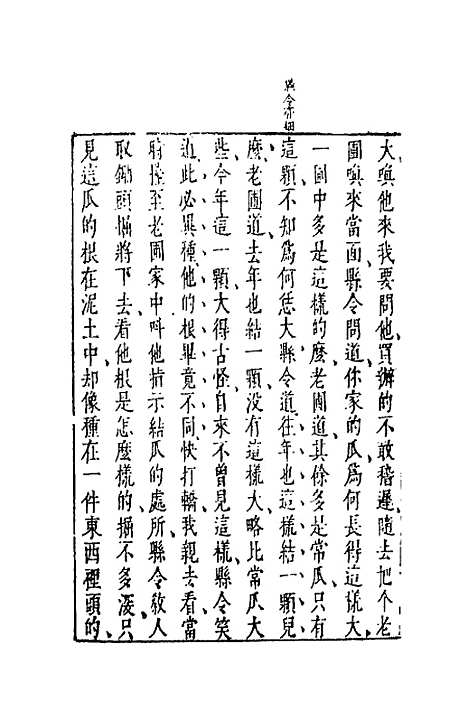 縣令亦細
大喚他來我要問他買辦的不敢稽遲隨去把个老
圃喚來當面縣令問道你家的瓜爲何長得這㨾大
一圃中多是這樣的麼老圃道其餘多是常瓜只有
這顆不知爲何恁大縣令道往年也這樣結一顆兒
麼老圃道去年也結一顆没有這樣大略比常瓜大
些今年這一顆大得古怪自來不曾見這樣縣令笑
道此必異種他的根畢竟不同快打轎我親去看當
時擡至老圃家中呌他指示結瓜的處所縣令教人
取鋤頭掘將下去看他根是怎麼樣的掘不多深只
見這瓜的根在泥土中却像種在一件東西裡頭的